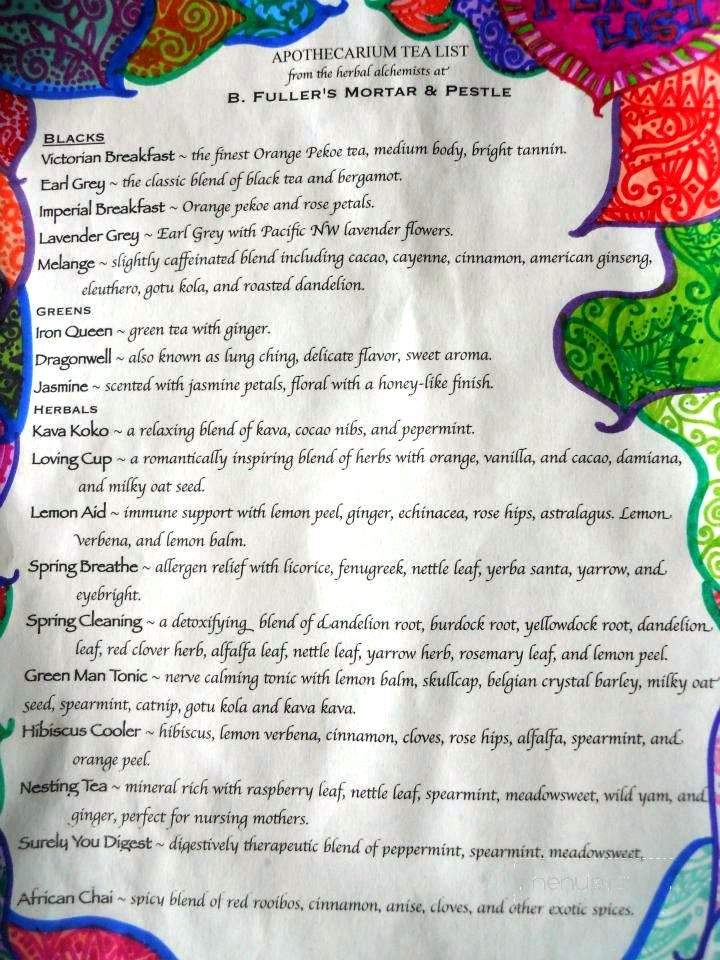 LIST
APOTHECARIUM TEA LIST
from the herbal alchemists at
B. FULLER'S MORTAR & PESTLE
BLACKS
Victorian Breakfast ~ the finest Orange Pekoe tea, medium body, bright tannin.
Earl Grey ~ the classic blend of black tea and bergamot.
Imperial Breakfast ~ Orange pekoe and rose petals.
Lavender Grey ~ Earl Grey with Pacific NW lavender flowers.
Melange ~ slightly caffeinated blend including cacao, cayenne, cinnamon, american ginseng,
eleuthero, gotu kola, and roasted dandelion.
GREENS
Iron Queen ~ green tea with ginger.
Dragonwell ~ also known as lung ching, delicate flavor, sweet aroma.
Jasmine ~ scented with jasmine petals, floral with a honey-like finish.
HERBALS
Kava Koko ~ a relaxing blend of kava, cocao nibs, and pepermint.
Loving Cup ~ a romantically inspiring blend of herbs with orange, vanilla, and cacao, damiana,
and milky oat seed.
Lemon Aid ~ immune support with lemon peel, ginger, echinacea, rose hips, astralagus. Lemon
Verbena, and lemon balm.
Spring Breathe ~ allergen relief with licorice, fenugreek, nettle leaf, yerba santa, yarrow, and
eyebright.
Spring Cleaning ~ a detoxifying blend of dandelion root, burdock root, yellowdock root, dandelion
leaf, red clover herb, alfalfa leaf, nettle leaf, yarrow herb, rosemary leaf, and lemon peel.
Green Man Tonic ~ nerve calming tonic with lemon balm, skullcap, belgian crystal barley, milky oat
seed, spearmint, catnip, gotu kola and kava kava.
Hibiscus Cooler ~ hibiscus, lemon verbena, cinnamon, cloves, rose hips, alfalfa, spearmint, and
orange peel.
Nesting Tea ~ mineral rich with raspberry leaf, nettle leaf, spearmint, meadowsweet, wild yam, and
ginger, perfect for nursing mothers.
Surely You Digest ~ digestively therapeutic blend of peppermint, spearmint, meadowsweet,
African Chai ~ spicy blend of red rooibos, cinnamon, anise, cloves, and other exotic spices.